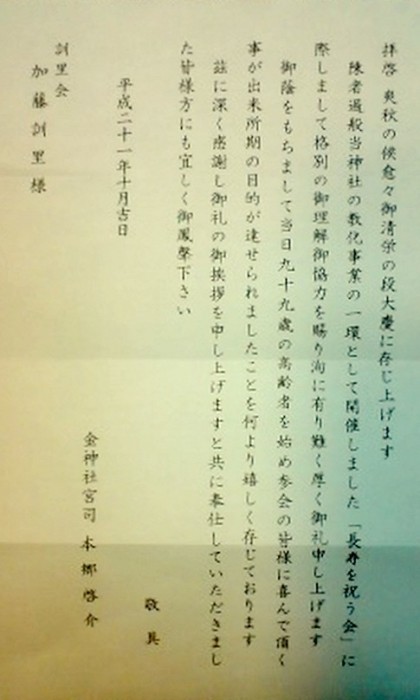 拝啓 爽秋の候愈々御清栄の段大慶に存じ上げます
陳者過般当神社の教化事業の一環として開催しました「長寿を祝う会」に
際しまして格別の御理解御協力を賜り洵に有り難く厚く御礼申し上げます
御蔭をもちまして当日九十九歳の高齢者を始め参会の皆様に喜んで頂く
事が出来所期の目的が達せられましたことを何より嬉しく存じております
茲に深く感謝し御礼の御挨拶を申し上げますと共に奉仕していただきまし
た皆様方にも宜しく御鳳声下さい
敬具
平成二十一年十月吉日
金神社宮司 本郷啓介
訓里会
加藤訓里様